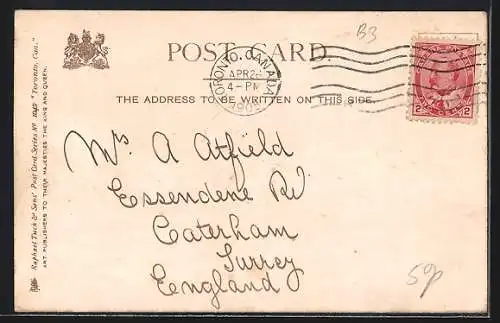 B3
POST CARD.
TORONTO, CANADA
APR 2
4-PM
190
THE ADDRESS TO BE WRITTEN ON THIS SIDE.
2 2
Mrs A Atfield
Essendene Rd
Caterham
Surrey
England
50p
Raphael Tuck & Sons' Post Card Series No 1040 "Toronto, Can."
ART PUBLISHERS TO THEIR MAJESTIES THE KING AND QUEEN.